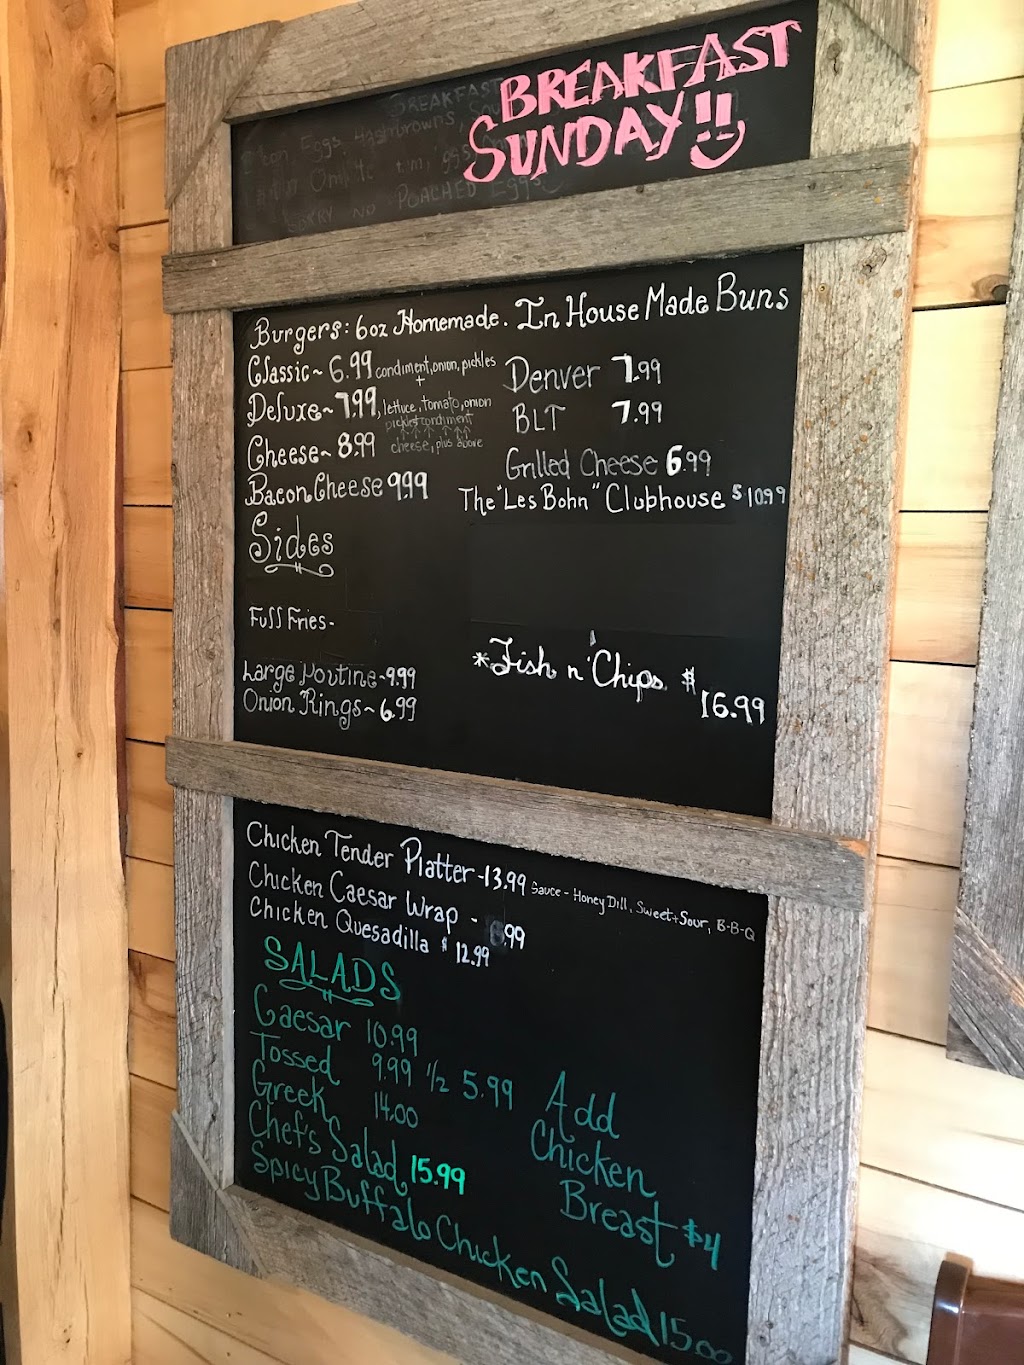 BREAKFAST
SUNDAY!!
BREAKFAST
Eggs, Hashbrowns,
SORRY NO POACHED Eggs
Burgers: 6oz Homemade. In House Made Buns
Classic~ 6.99 condiment, onion, pickles
Deluxe~ 7.99, lettuce, tomato, onion
pickles condiment
Cheese~ 8.99 cheese, plus above
Bacon Cheese 9.99
Denver 7.99
BLT 7.99
Grilled Cheese 6.99
The "Les Bohn" Clubhouse $10.99
Sides
Full Fries-
Large Poutine~9.99
Onion Rings~ 6.99
*Fish n' Chips. $16.99
Chicken Tender Platter-13.99 Sauce - Honey Dill, Sweet+Sour, B-B-Q
Chicken Caesar Wrap - .99
Chicken Quesadilla $12.99
SALADS
Caesar 10.99
Tossed 9.99 1/2 5.99
Greek 14.00
Chef's Salad 15.99
Spicy Buffalo Chicken Salad 15.00
Add
Chicken
Breast $4